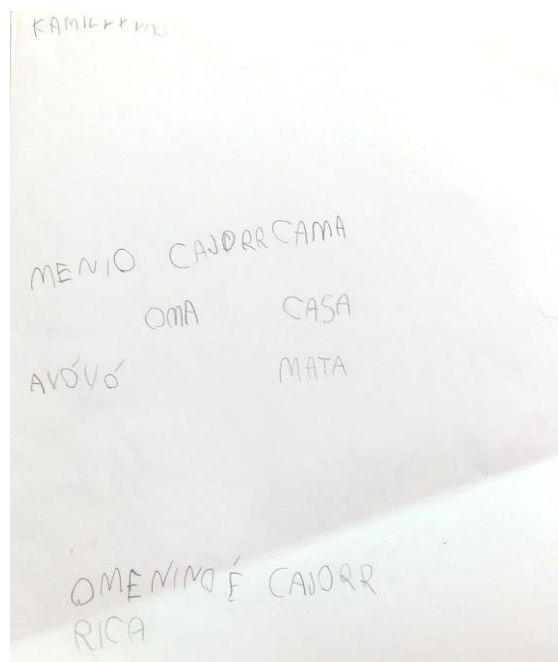 MENIO CAJORR CAMA
OMA CASA
AVÓVÓ MATA
OMENINO É CAJORR
RICA